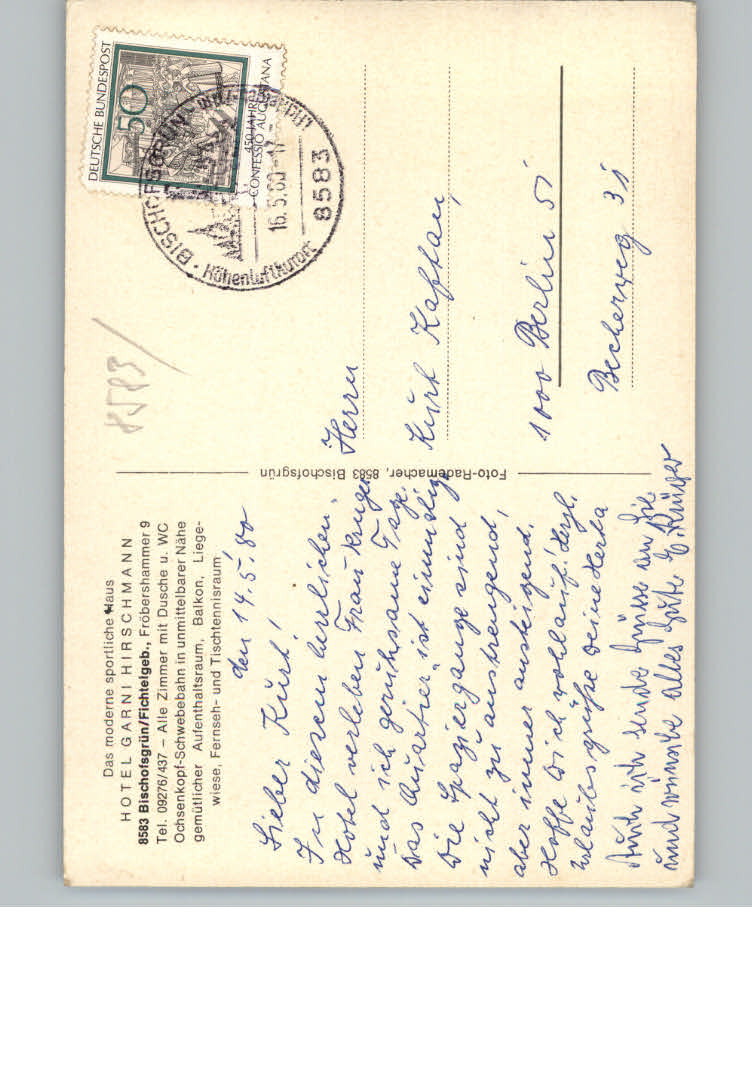 Das moderne sportliche Haus
HOTEL GARNI HIRSCHMANN
8583 Bischofsgrün/Fichtelgeb., Fröbershammer 9
Tel. 09276/437 – Alle Zimmer mit Dusche u. WC
Ochsenkopf-Schwebebahn in unmittelbarer Nähe
gemütlicher Aufenthaltsraum, Balkon, Liege-
wiese, Fernseh- und Tischtennisraum
den 14.5.80
Lieber Kurt!
In diesem herrlichen
Hotel verleben Frau Krüger
und ich geruhsame Tage.
Das Quartier ist einmalig
Die Spaziergänge sind
nicht zu anstrengend,
aber immer ansteigend.
Hoffe Dich wohlauf! Herzl.
Urlaubsgrüße Deine Herta
Auch ich sende Grüße an Sie
und wünsche alles Gute E. Krüger
Foto-Rademacher, 8583 Bischofsgrün
8583
DEUTSCHE BUNDESPOST
50
450 JAHRE
CONFESSIO AUGUSTANA
BISCHOFSGRÜN
16.5.80-17
8583
Höhenluftkurort
Herrn
Kurt Kaftan,
1000 Berlin 51
Becherweg 31